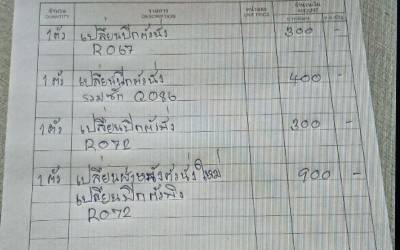 จำนวน รายการ หน่วยละ จำนวนเงิน
QUANTITY DESCRIPTION UNIT PRICE AMOUNT
1 ตัว เปลี่ยนปีกตัวนั่ง 300 -
R067
1 ตัว เปลี่ยนปีกตัวนั่ง 400 -
รวมซัก Q086
1 ตัว เปลี่ยนปีกตัวนั่ง 300 -
R072
1 ตัว เปลี่ยนผ้าหนังตัวนั่งใหม่ 900 -
เปลี่ยนปีกตัวพิง
R072